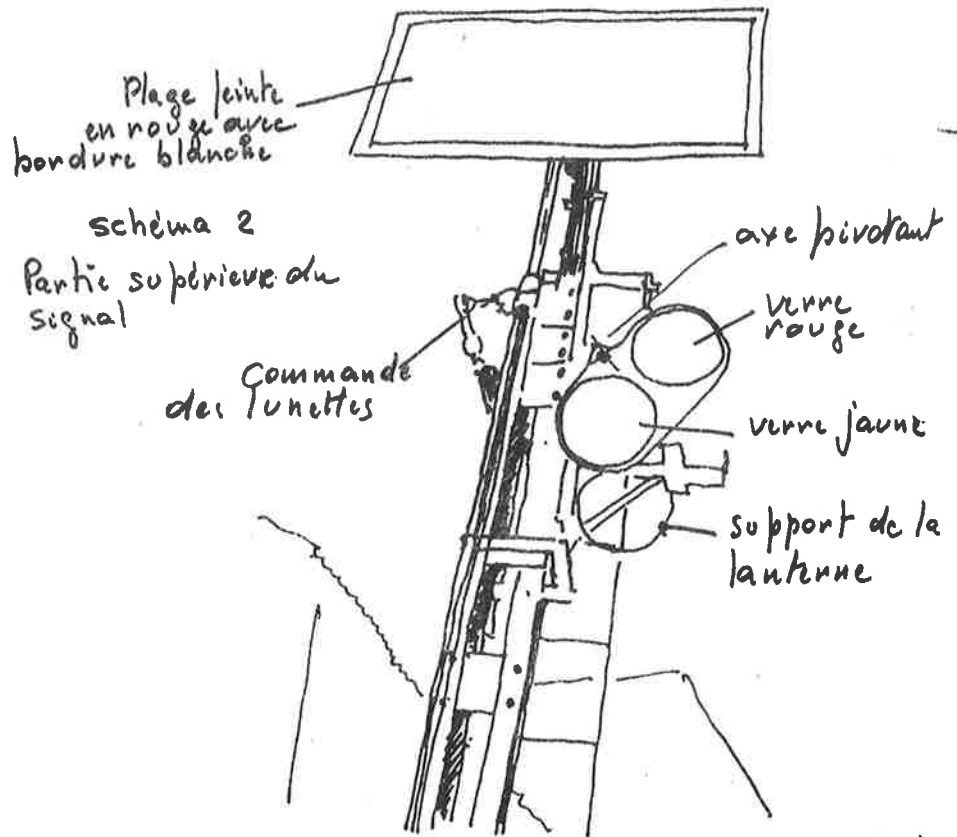 Plage peinte
en rouge avec
bordure blanche
schéma 2
Partie supérieure du
signal
Commande
des lunettes
axe pivotant
verre
rouge
verre jaune
support de la
lanterne